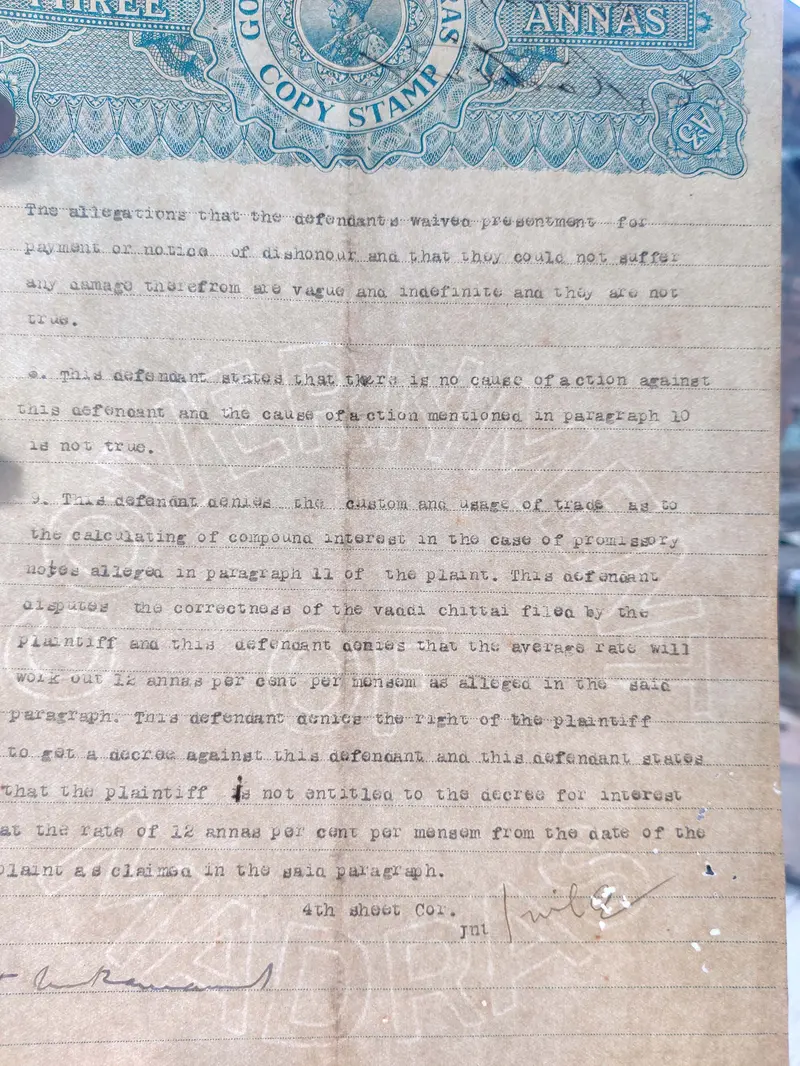 THREE
ANNAS
GO
RAS
COPY STAMP
A3
The allegations that the defendants waived presentment for
payment or notice of dishonour and that they could not suffer
any damage therefrom are vague and indefinite and they are not
true.
8. This defendant states that there is no cause of action against
this defendant and the cause of action mentioned in paragraph 10
is not true.
9. This defendant denies the custom and usage of trade as to
the calculating of compound interest in the case of promissory
notes alleged in paragraph 11 of the plaint. This defendant
disputes the correctness of the vaddi chittai filed by the
plaintiff and this defendant denies that the average rate will
work out 12 annas per cent per mensem as alleged in the said
paragraph. This defendant denies the right of the plaintiff
to get a decree against this defendant and this defendant states
that the plaintiff is not entitled to the decree for interest
at the rate of 12 annas per cent per mensem from the date of the
plaint as claimed in the said paragraph.
4th sheet Cor.
Jnt
GOVERNMENT
OF
MADRAS